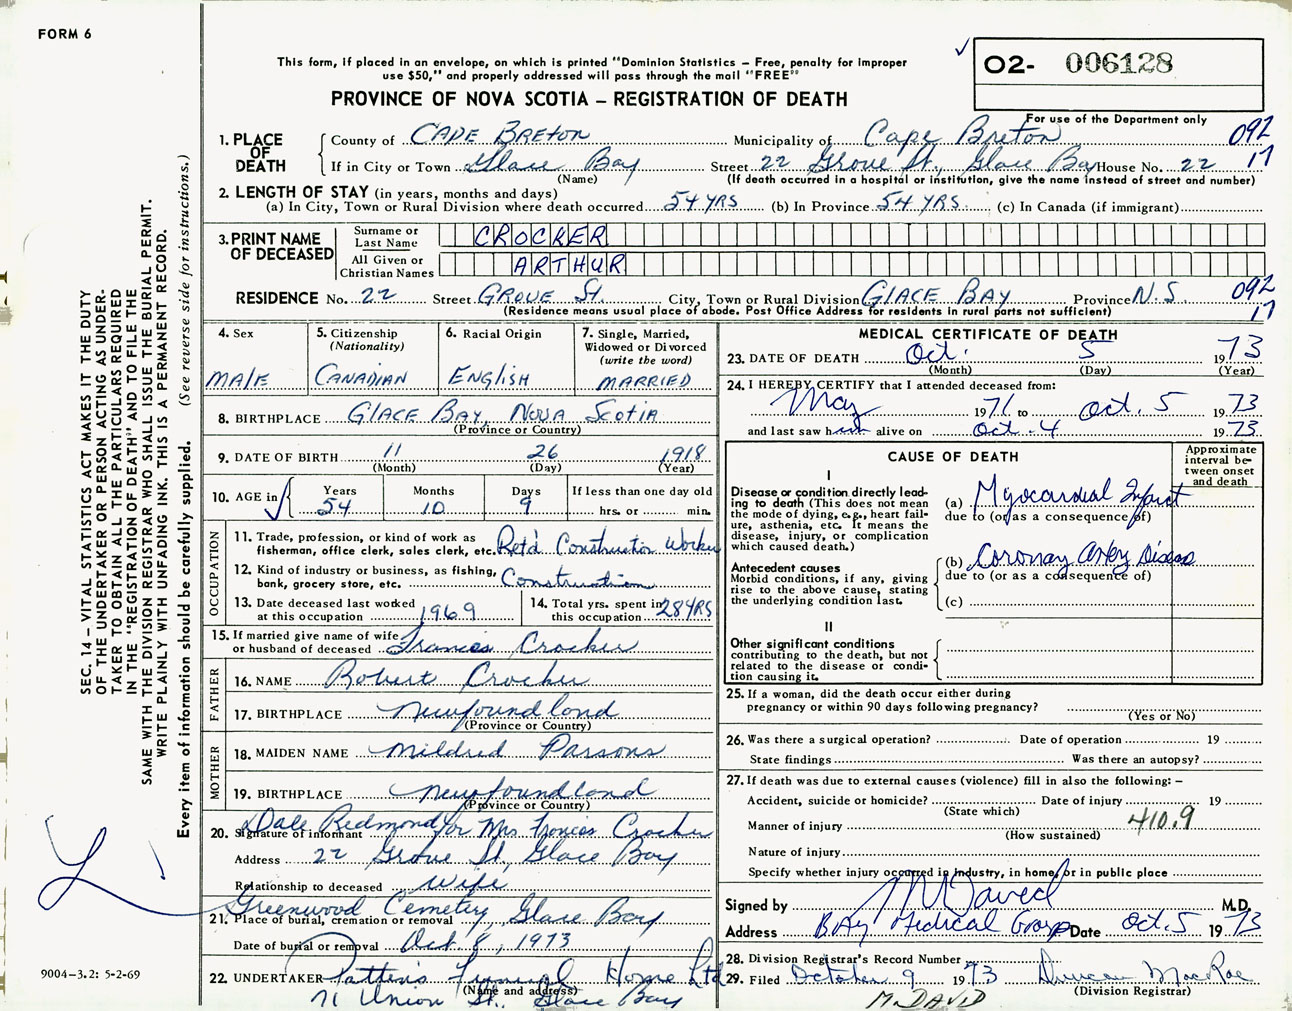 FORM 6
This form, if placed in an envelope, on which is printed "Dominion Statistics – Free, penalty for improper
use $50," and properly addressed will pass through the mail "FREE"
PROVINCE OF NOVA SCOTIA – REGISTRATION OF DEATH
02- 006128
For use of the Department only
1. PLACE OF DEATH
County of CAPE BRETON Municipality of Cape Breton 092
If in City or Town Glace Bay Street 22 Grove St., Glace Bay House No. 22 17
(Name) (If death occurred in a hospital or institution, give the name instead of street and number)
2. LENGTH OF STAY (in years, months and days)
(a) In City, Town or Rural Division where death occurred 54 YRS (b) In Province 54 YRS. (c) In Canada (if immigrant)
3. PRINT NAME OF DECEASED
Surname or Last Name CROCKER
All Given or Christian Names ARTHUR
RESIDENCE No. 22 Street GROVE St. City, Town or Rural Division GLACE BAY Province N.S. 092
(Residence means usual place of abode. Post Office Address for residents in rural parts not sufficient) 17
4. Sex
MALE
5. Citizenship
(Nationality)
CANADIAN
6. Racial Origin
ENGLISH
7. Single, Married,
Widowed or Divorced
(write the word)
MARRIED
8. BIRTHPLACE GLACE BAY, NOVA SCOTIA
(Province or Country)
9. DATE OF BIRTH 11 26 1918
(Month) (Day) (Year)
10. AGE in Years Months Days If less than one day old
54 10 9 hrs. or min.
OCCUPATION
11. Trade, profession, or kind of work as
fisherman, office clerk, sales clerk, etc. Ret'd Construction Worker
12. Kind of industry or business, as fishing,
bank, grocery store, etc. Construction
13. Date deceased last worked
at this occupation 1969
14. Total yrs. spent in
this occupation 28 YRS
15. If married give name of wife
or husband of deceased Frances Crocker
FATHER
16. NAME Robert Crocker
17. BIRTHPLACE Newfoundland
(Province or Country)
MOTHER
18. MAIDEN NAME Mildred Parsons
19. BIRTHPLACE Newfoundland
(Province or Country)
20. Signature of informant Dale Redmond for Mrs Frances Crocker
Address 22 Grove St., Glace Bay
Relationship to deceased wife
21. Place of burial, cremation or removal Greenwood Cemetery Glace Bay
Date of burial or removal Oct 8, 1973
22. UNDERTAKER Patten's Funeral Home Ltd
(Name and address)
71 Union St. Glace Bay
MEDICAL CERTIFICATE OF DEATH
23. DATE OF DEATH Oct. 5 1973
(Month) (Day) (Year)
24. I HEREBY CERTIFY that I attended deceased from:
May 1971 to Oct. 5 1973
and last saw him alive on Oct - 4 1973
CAUSE OF DEATH
Approximate
interval be-
tween onset
and death
I
Disease or condition directly lead-
ing to death (This does not mean
the mode of dying, e.g., heart fail-
ure, asthenia, etc. It means the
disease, injury, or complication
which caused death.)
(a) Myocardial Infarct
due to (or as a consequence of)
Antecedent causes
Morbid conditions, if any, giving
rise to the above cause, stating
the underlying condition last.
(b) Coronary Artery Disease
due to (or as a consequence of)
(c)
II
Other significant conditions
contributing to the death, but not
related to the disease or condi-
tion causing it.
25. If a woman, did the death occur either during
pregnancy or within 90 days following pregnancy?
(Yes or No)
26. Was there a surgical operation? Date of operation 19
State findings Was there an autopsy?
27. If death was due to external causes (violence) fill in also the following: –
Accident, suicide or homicide? Date of injury 19
(State which)
Manner of injury 410.9
(How sustained)
Nature of injury
Specify whether injury occurred in industry, in home, or in public place
Signed by M David M.D.
Address BAY Medical Group Date Oct. 5 1973
28. Division Registrar's Record Number
29. Filed October 9 1973 Duncan MacRae
(Division Registrar)
M. DAVID
SEC. 14 – VITAL STATISTICS ACT MAKES IT THE DUTY
OF THE UNDERTAKER OR PERSON ACTING AS UNDER-
TAKER TO OBTAIN ALL THE PARTICULARS REQUIRED
IN THE "REGISTRATION OF DEATH" AND TO FILE THE
SAME WITH THE DIVISION REGISTRAR WHO SHALL ISSUE THE BURIAL PERMIT.
WRITE PLAINLY WITH UNFADING INK. THIS IS A PERMANENT RECORD.
Every item of information should be carefully supplied. (See reverse side for instructions.)
9004-3.2: 5-2-69